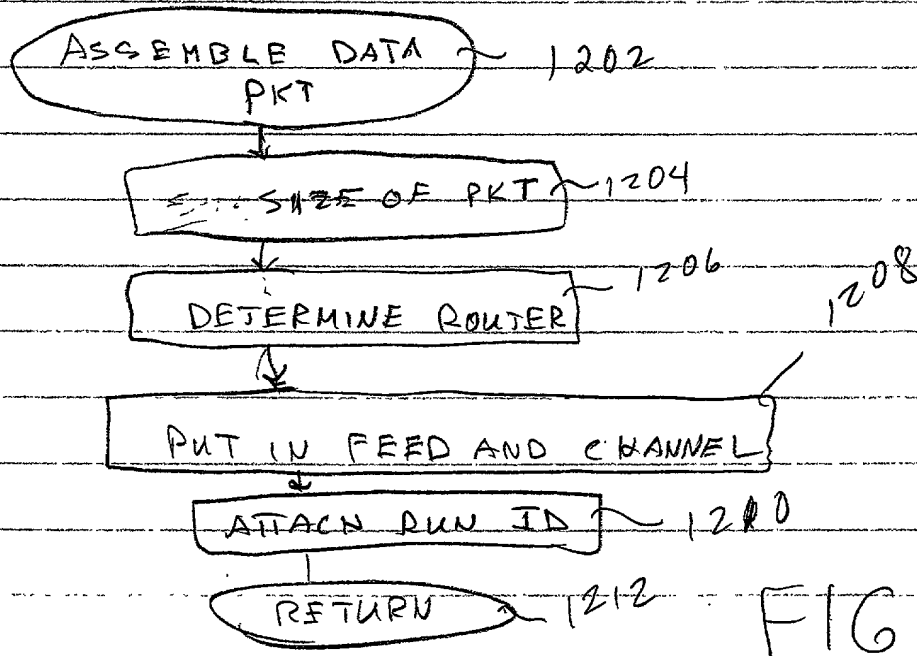 ASSEMBLE DATA 1202
PKT
SIZE OF PKT 1204
1206
DETERMINE ROUTER
1208
PUT IN FEED AND CHANNEL
ATTACH RUN ID 1210
RETURN 1212
FIG